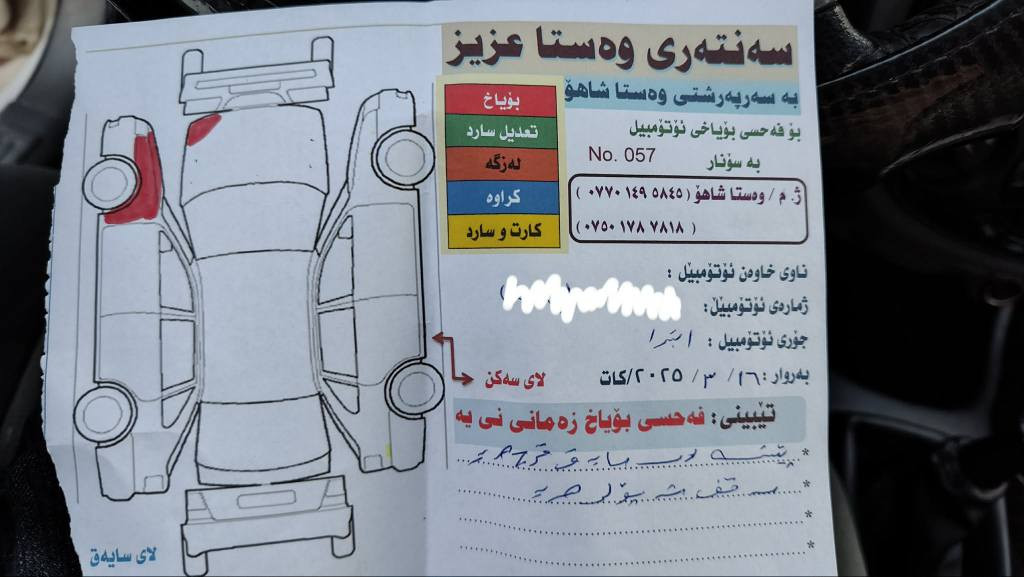 سەنتەری وەستا عزیز
بە سەرپەرشتی وەستا شاهۆ
بۆ فەحسی بۆیاخی ئۆتۆمبیل
بە سۆنار
No. 057
ژ. م / وەستا شاهۆ ( ٠٧٧٠ ١٤٩ ٥٨٤٥ )
( ٠٧٥٠ ١٧٨ ٧٨١٨ )
بۆیاخ
تعدیل سارد
لەزگە
کراوە
کارت و سارد
ناوی خاوەن ئۆتۆمبێل :
ژمارەی ئۆتۆمبێل:
جۆری ئۆتۆمبیل :
بەروار : ١٦ / ٣ / ٢٠٢٥/کات
لای سەکن
تێبینی : فەحسی بۆیاخ زەمانی نی یە
لای سایەق